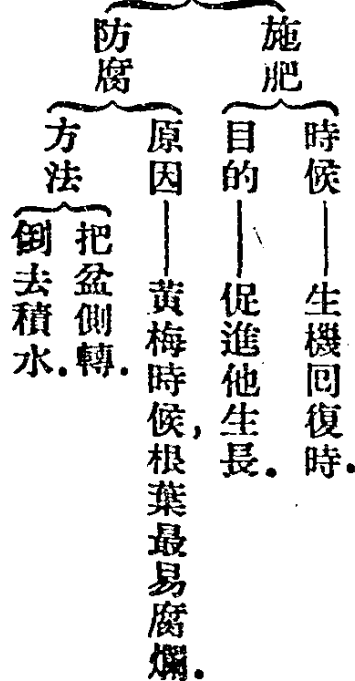 施肥
時候——生機囘復時.
目的——促進他生長.
防腐
原因——黃梅時候,根葉最易腐爛.
方法
把盆側轉.
倒去積水.